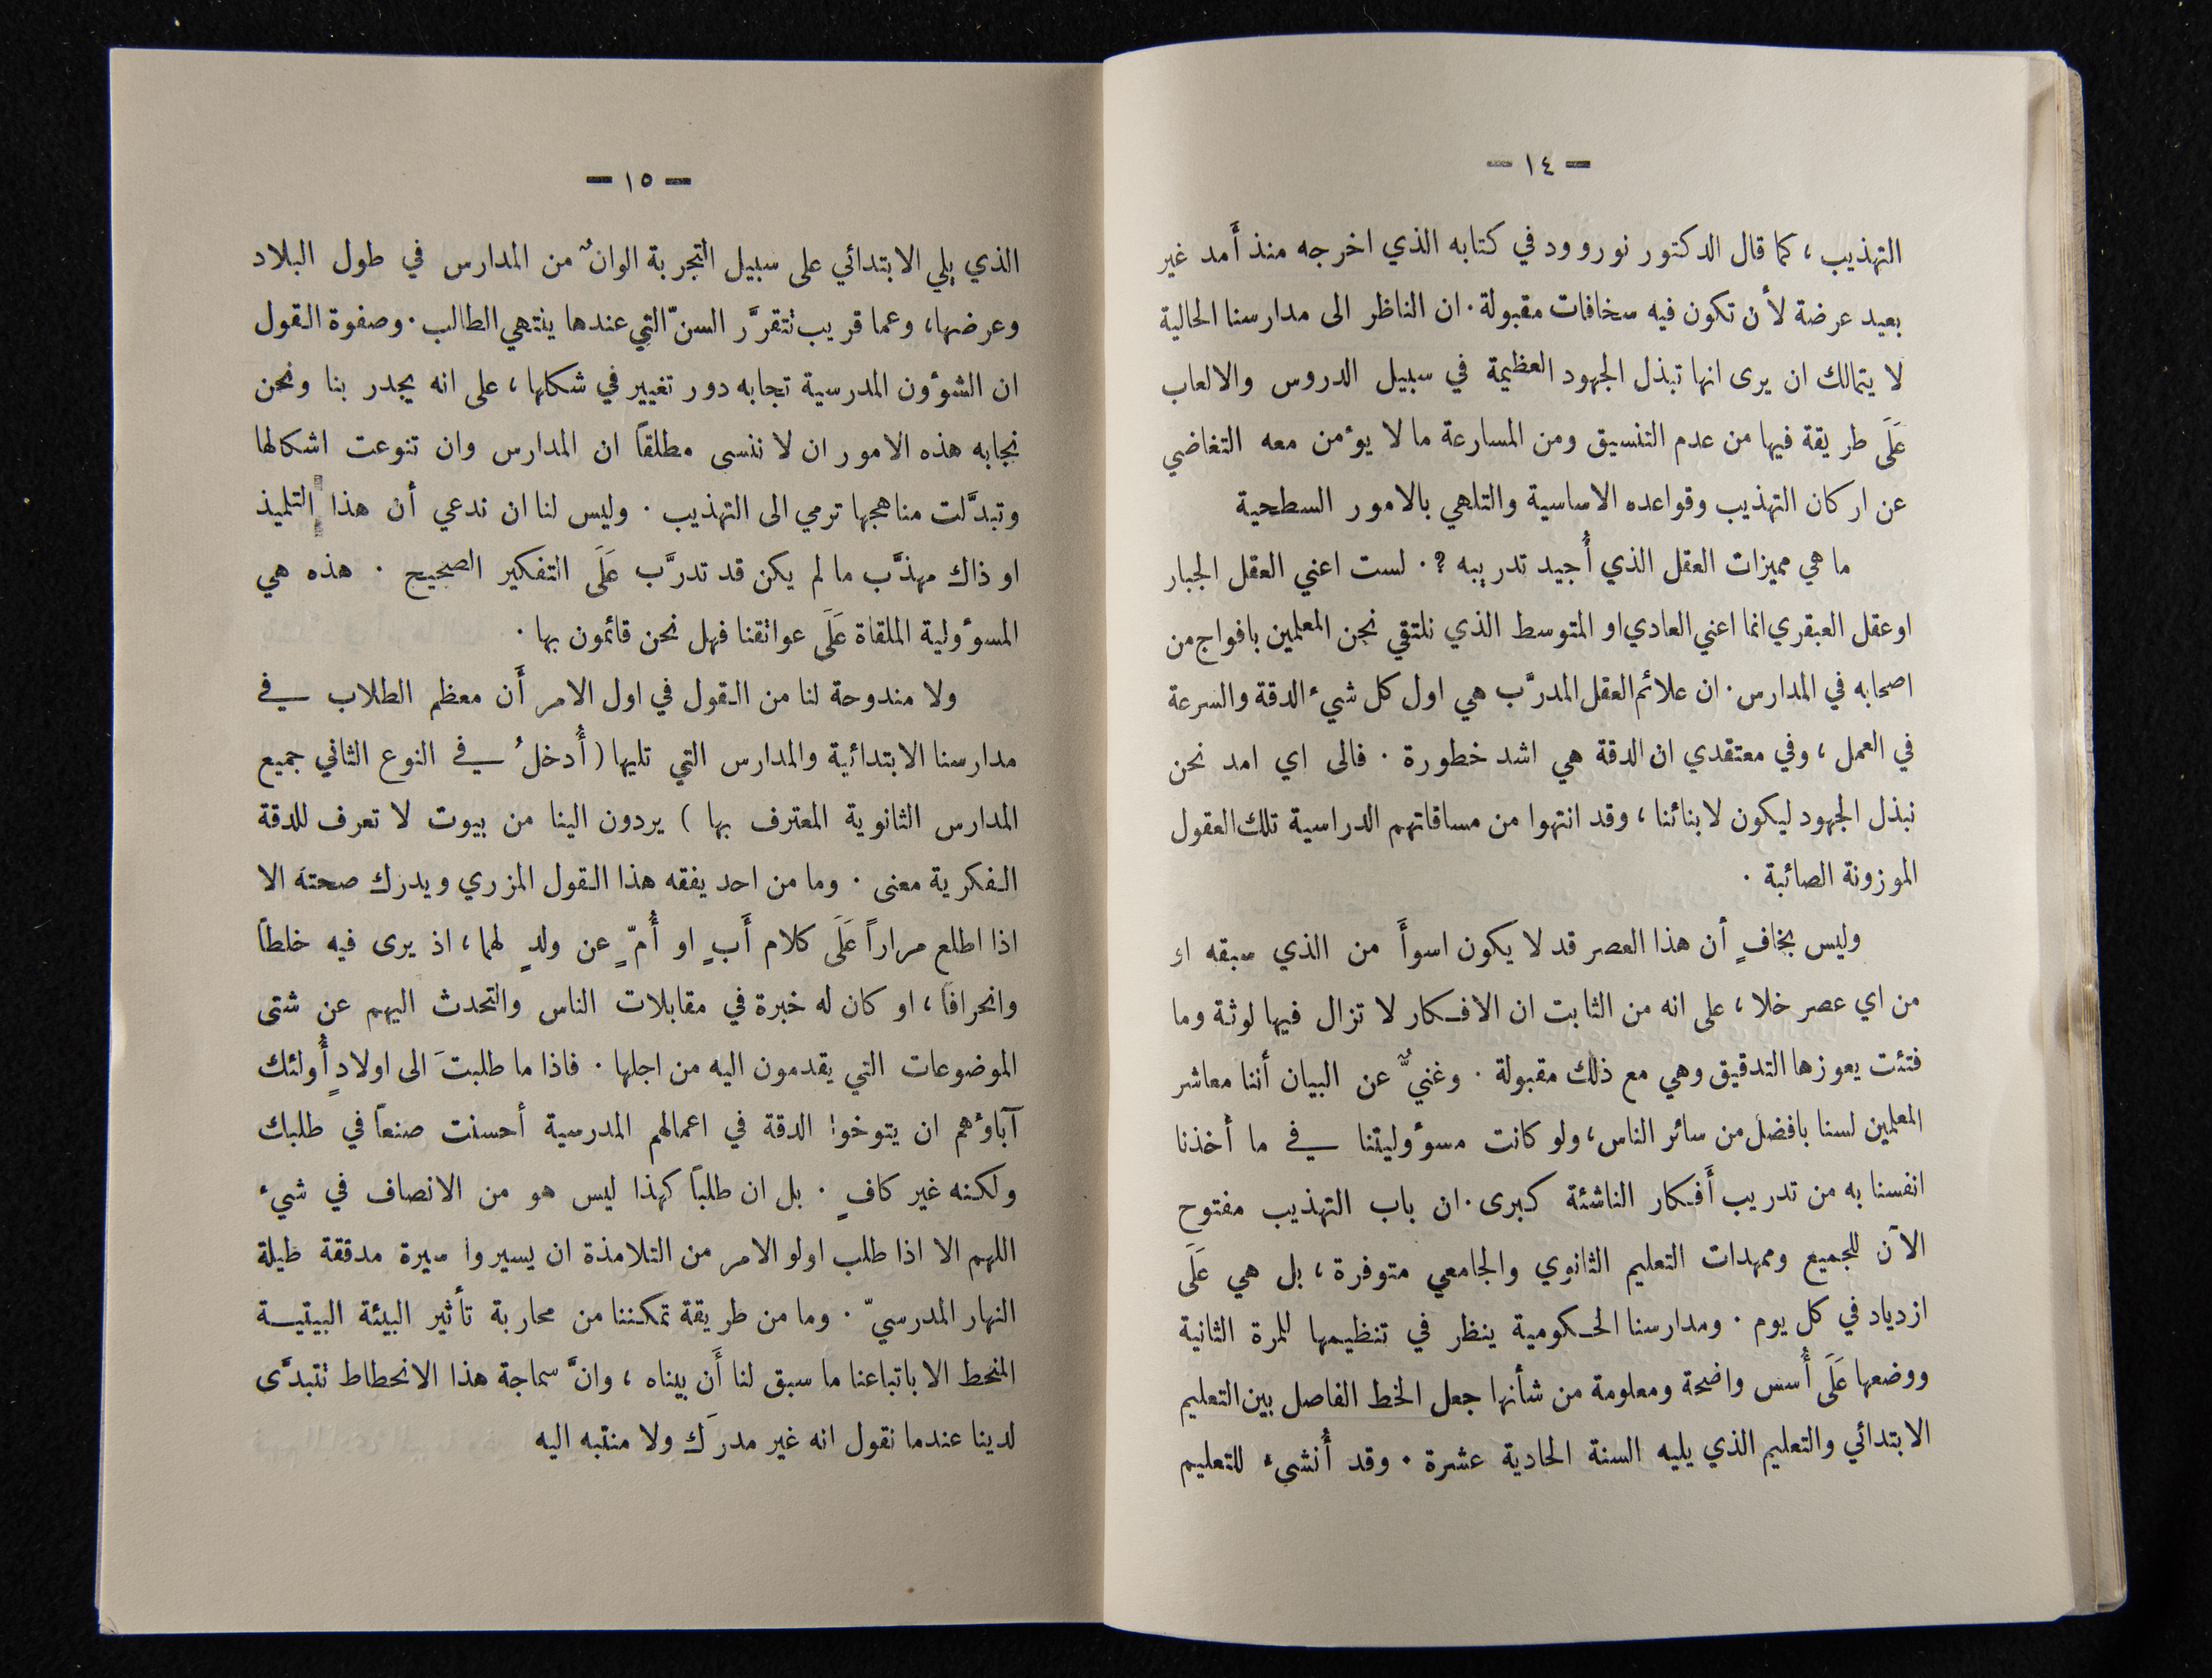 — ١٤ —
التهذيب ، كما قال الدكتور نوروود في كتابه الذي اخرجه منذ أَمد غير
بعيد عرضة لأن تكون فيه سخافات مقبولة . ان الناظر الى مدارسنا الحالية
لا يتمالك ان يرى انها تبذل الجهود العظيمة في سبيل الدروس والالعاب
عَلَى طريقة فيها من عدم التنسيق ومن المسارعة ما لا يوءمن معه التغاضي
عن اركان التهذيب وقواعده الاساسية والتلاهي بالامور السطحية
ما هي مميزات العقل الذي أُجيد تدريبه ? . لست اعني العقل الجبار
او عقل العبقري انما اعني العادي او المتوسط الذي نلتقي نحن المعلمين بافواج من
اصحابه في المدارس . ان علائم العقل المدرَّب هي اول كل شيء الدقة والسرعة
في العمل ، وفي معتقدي ان الدقة هي اشد خطورة . فالى اي امد نحن
نبذل الجهود ليكون لابنائنا ، وقد انتهوا من مساقاتهم الدراسية تلك العقول
الموزونة الصائبة .
وليس بخافٍ أن هذا العصر قد لا يكون اسوأَ من الذي سبقه او
من اي عصر خلا ، على انه من الثابت ان الافكار لا تزال فيها لوثة وما
فتئت يعوزها التدقيق وهي مع ذلك مقبولة . وغنيٌّ عن البيان أننا معاشر
المعلمين لسنا بافضل من سائر الناس ، ولو كانت مسوءوليتنا في ما أخذنا
انفسنا به من تدريب أَفكار الناشئة كبرى . ان باب التهذيب مفتوح
الآن للجميع وممهدات التعليم الثانوي والجامعي متوفرة ، بل هي عَلَى
ازدياد في كل يوم . ومدارسنا الحكومية ينظر في تنظيمها للمرة الثانية
ووضعها عَلَى أُسس واضحة ومعلومة من شأنها جعل الخط الفاصل بين التعليم
الابتدائي والتعليم الذي يليه السنة الحادية عشرة . وقد أُنشيء للتعليم
— ١٥ —
الذي يلي الابتدائي على سبيل التجربة الوانٌ من المدارس في طول البلاد
وعرضها ، وعما قريب تتقرَّر السنّ التي عندها ينتهي الطالب . وصفوة القول
ان الشوءون المدرسية تجابه دور تغيير في شكلها ، على انه يجدر بنا ونحن
نجابه هذه الامور ان لا ننسى مطلقاً ان المدارس وان تنوعت اشكالها
وتبدَّلت مناهجها ترمي الى التهذيب . وليس لنا ان ندعي أن هذا التلميذ
او ذاك مهذَّب ما لم يكن قد تدرَّب عَلَى التفكير الصحيح . هذه هي
المسوءولية الملقاة عَلَى عواتقنا فهل نحن قائمون بها .
ولا مندوحة لنا من القول في اول الامر أَن معظم الطلاب في
مدارسنا الابتدائية والمدارس التي تليها ( أُدخلُ في النوع الثاني جميع
المدارس الثانوية المعترف بها ) يردون الينا من بيوت لا تعرف للدقة
الفكرية معنى . وما من احد يفقه هذا القول المزري ويدرك صحته الا
اذا اطلع مراراً عَلَى كلام أَبٍ او أُمّ ٍ عن ولدٍ لهما ، اذ يرى فيه خلطاً
وانحرافاً ، او كان له خبرة في مقابلات الناس والتحدث اليهم عن شتى
الموضوعات التي يقدمون اليه من اجلها . فاذا ما طلبتَ الى اولادٍ أُولئك
آباوءهم ان يتوخوا الدقة في اعمالهم المدرسية أحسنت صنعاً في طلبك
ولكنه غير كافٍ . بل ان طلباً كهذا ليس هو من الانصاف في شيء
اللهم الا اذا طلب اولو الامر من التلامذة ان يسيروا سيرة مدققة طيلة
النهار المدرسيّ . وما من طريقة تمكننا من محاربة تأثير البيئة البيتية
المنحط الا باتباعنا ما سبق لنا أَن بيناه ، وانَّ سماجة هذا الانحطاط تتبدَّى
لدينا عندما نقول انه غير مدرَك ولا منتبه اليه